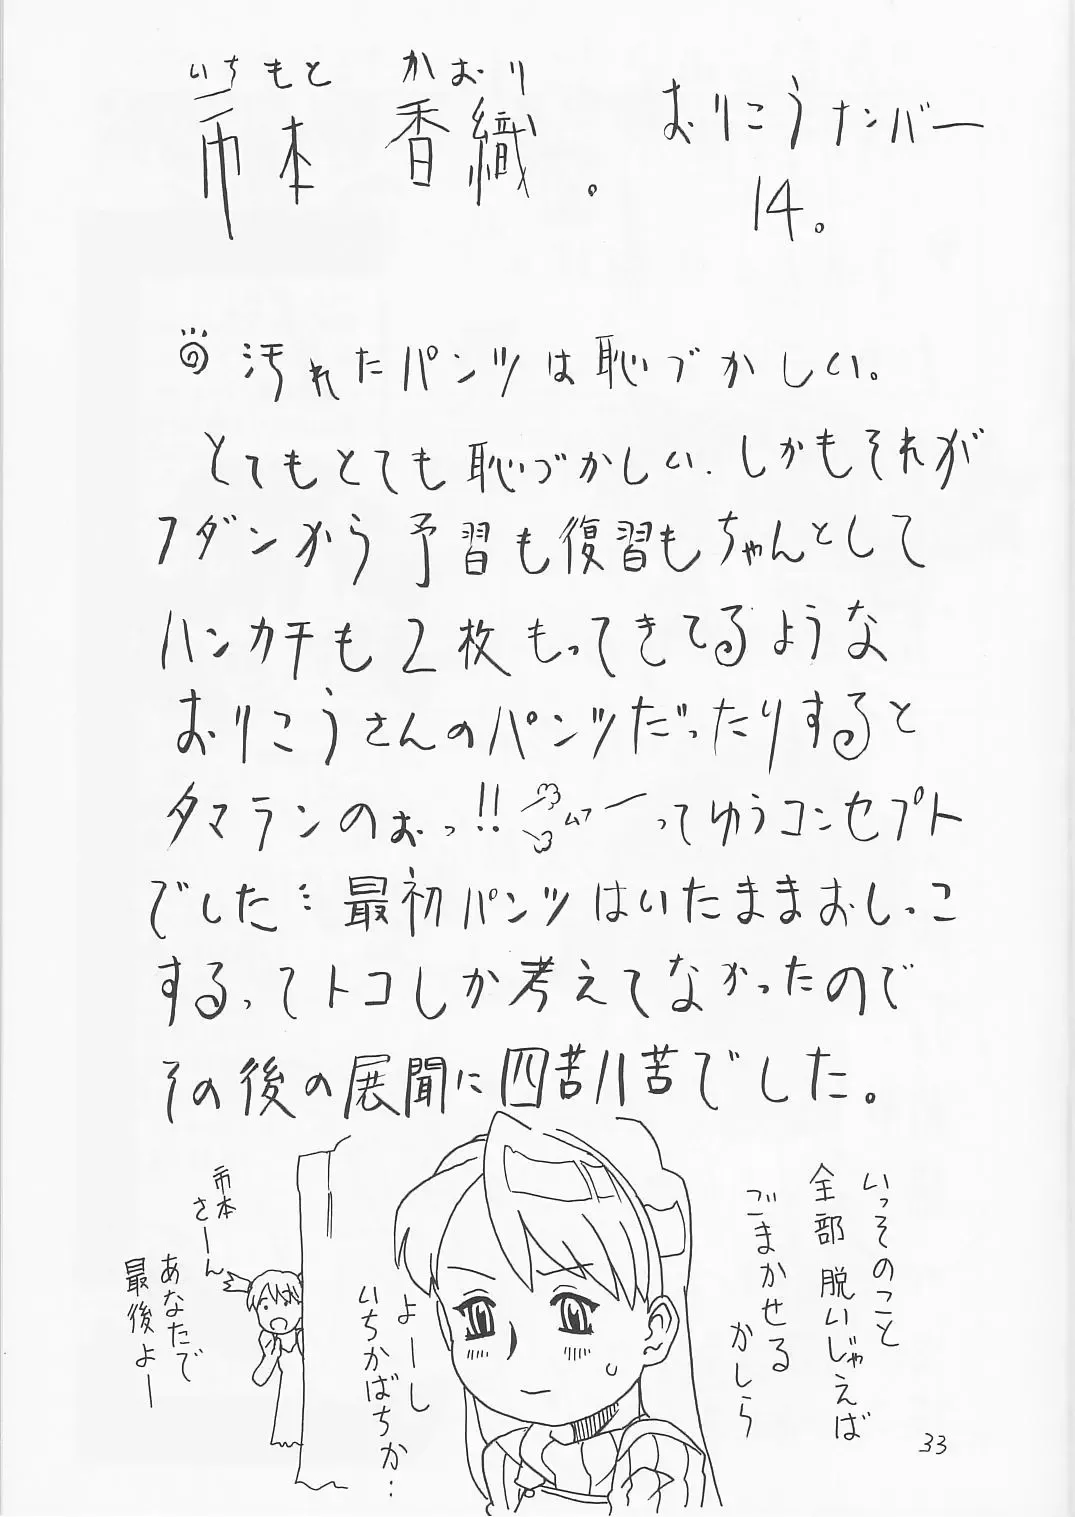 いちもと　かおり
市本　香織。
おりこうナンバー
14。
汚れたパンツは恥づかしい。
とてもとても恥づかしい.しかもそれが
フダンから予習も復習もちゃんとして
ハンカチも2枚もってきてるような
おりこうさんのパンツだったりすると
タマランのぉっ!!ムフーってゆうコンセプト
でした…最初パンツはいたままおしっこ
するってトコしか考えてなかったので
その後の展開に四苦八苦でした。
いっそのこと
全部脱いじゃえば
ごまかせる
かしら
よーし
いちかばちか…
市本
さーん
あなたで
最後よー
33